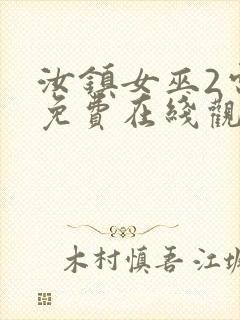 汝鎮女巫2
免費在綫觀
木村慎吾 江坂